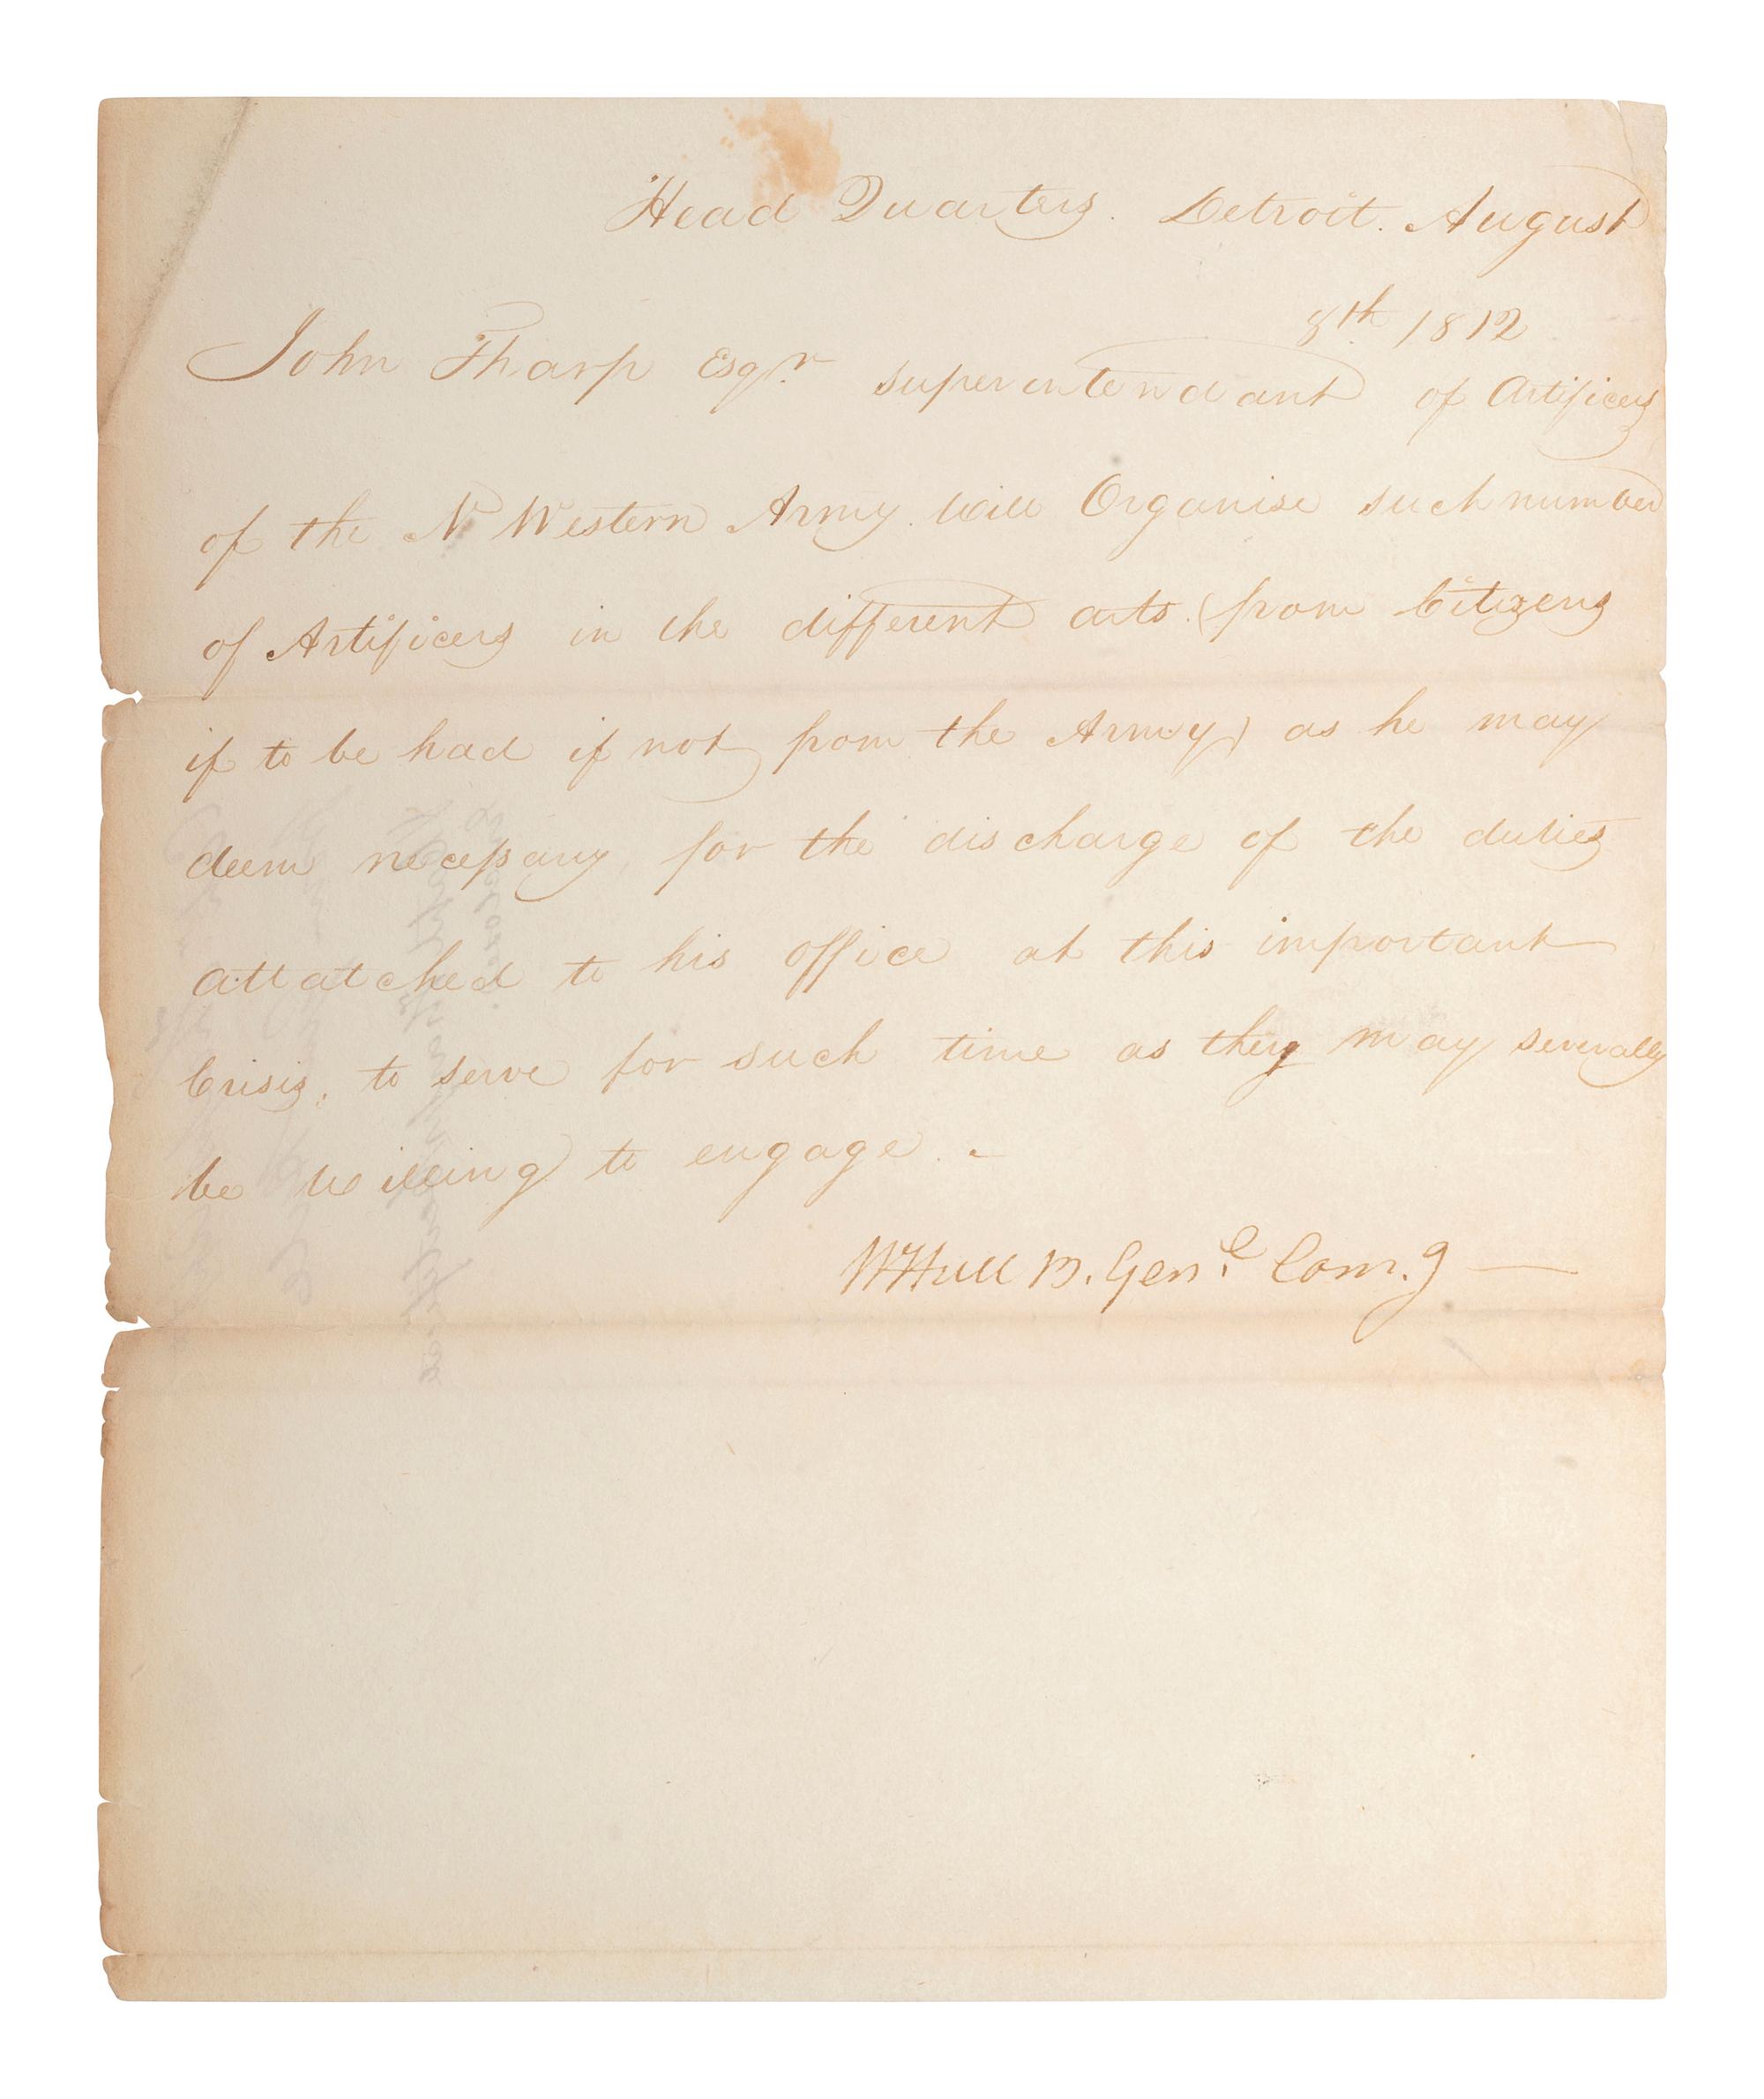 Head Quarters. Detroit. August
8th. 1812
John Tharp Esqr. superintendant of Artificers
of the N Western Army. will Organise such number
of Artificers in the different arts. (from Citizens
if to be had if not from the Army) as he may
deem necessary, for the discharge of the duties
attatched to his office at this important
Crisis, to serve for such time as they may severally
be willing to engage. -
WHull B. Genl. Com.g —